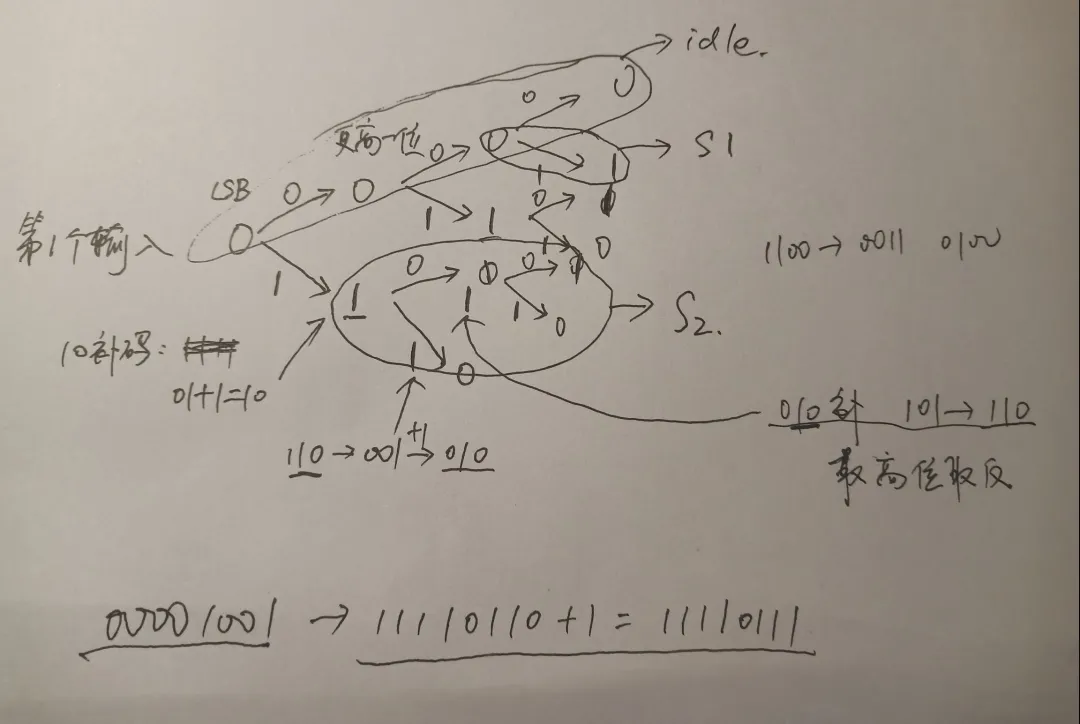 idle.
0
0
更高一位 0 0
S1
LSB 0 0
1
1
0
第1个输入 0
1 1
0
1 0
1
1100→0011 0100
0 0
1
1
1 0
S2.
10补码:
01+1=10
1 0
010补 101→110
+1
110→001→010
最高位取反
00001001→11110110+1=11110111